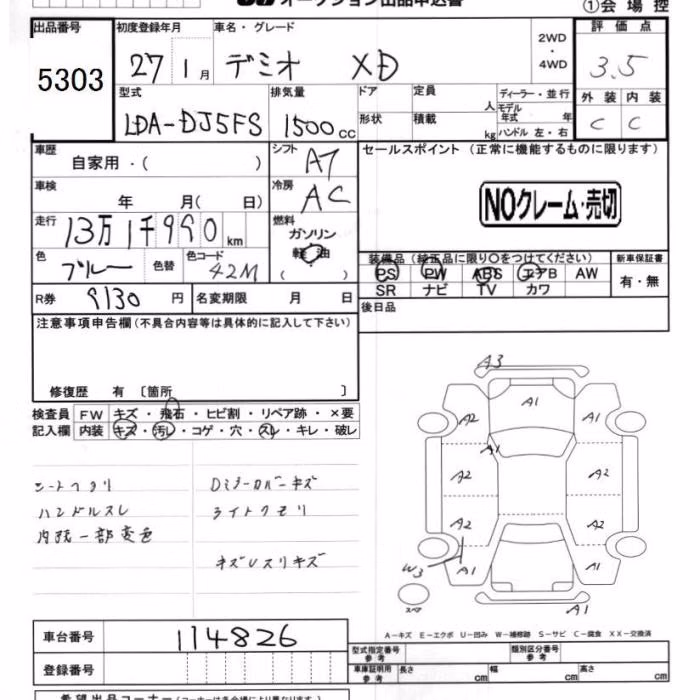 オークション出品申込書
①会場控
出品番号 5303
初度登録年月 27 1月
車名・グレード デミオ XD
2WD・4WD
評価点 3.5
型式 LDA-DJ5FS
排気量 1500cc
ドア 定員 人
形状 積載 kg
ディーラー・並行
モデル年式 年
ハンドル 左・右
外装 内装
C C
車歴 自家用・( )
シフト AT
車検 年 月( 日)
冷房 AC
走行 13万1千990km
燃料 ガソリン 軽油 ( )
色 ブルー 色替 色コード 42M
R券 9130円 名変期限 月 日
セールスポイント (正常に機能するものに限ります)
NOクレーム・売切
装備品 (純正品に限り○をつけてください)
PS PW ABS エアB AW
SR ナビ TV カワ
新車保証書
有・無
後日品
注意事項申告欄 (不具合内容等は具体的に記入して下さい)
修復歴 有 〔箇所 〕
検査員記入欄
FW キズ・飛石・ヒビ割・リペア跡・×要
内装 キズ・汚レ・コゲ・穴・スレ・キレ・破レ
ハンドルスレ
内装一部変色
Dミラーカバーキズ
ライトクモリ
キズUスリキズ
A3
A1
A2
A1
A2
A2
A2
A2
W3
A1
A1
スペア
A1
A-キズ E-エクボ U-凹み W-補修跡 S-サビ C-腐食 XX-交換済
車台番号 114826
登録番号
型式指定番号 参考
類別区分番号 参考
車庫証明用 参考 長さ cm 幅 cm 高さ cm
希望出品コーナー